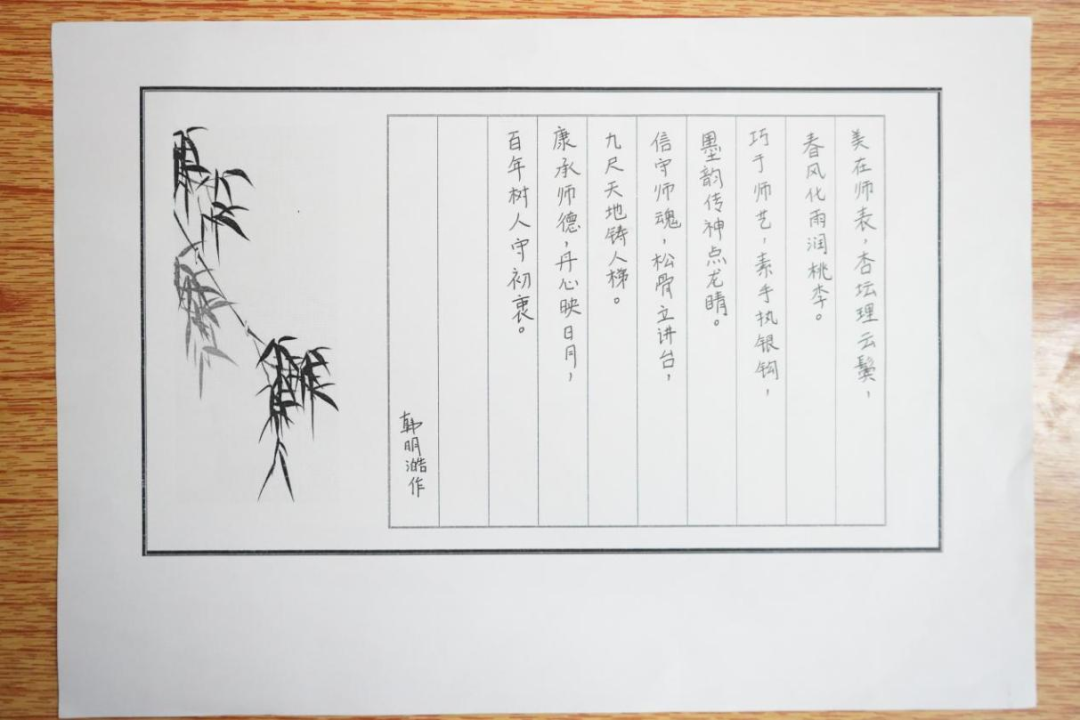 美在师表，杏坛理云鬓，
春风化雨润桃李。
巧于师艺，素手执银钩，
墨韵传神点龙睛。
信守师魂，松骨立讲台，
九尺天地铸人梯。
康承师德，丹心映日月，
百年树人守初衷。
韩明澔作